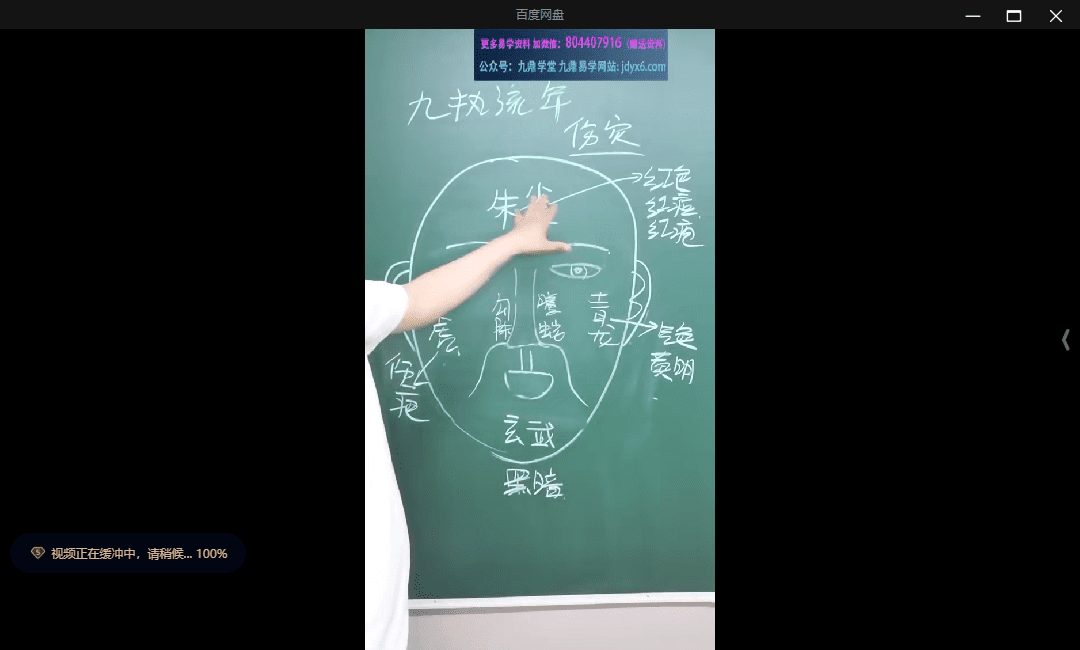 百度网盘
更多易学资料 加微信：804407916（赠送资料）
公众号：九鼎学堂 九鼎易学网站: jdyx6.com
九执流年
伤灾
朱雀
红色
红痘
红疤
勾陈
螣蛇
青龙
虎
气色
黄明
伤
疤
玄武
黑暗
视频正在缓冲中，请稍候... 100%